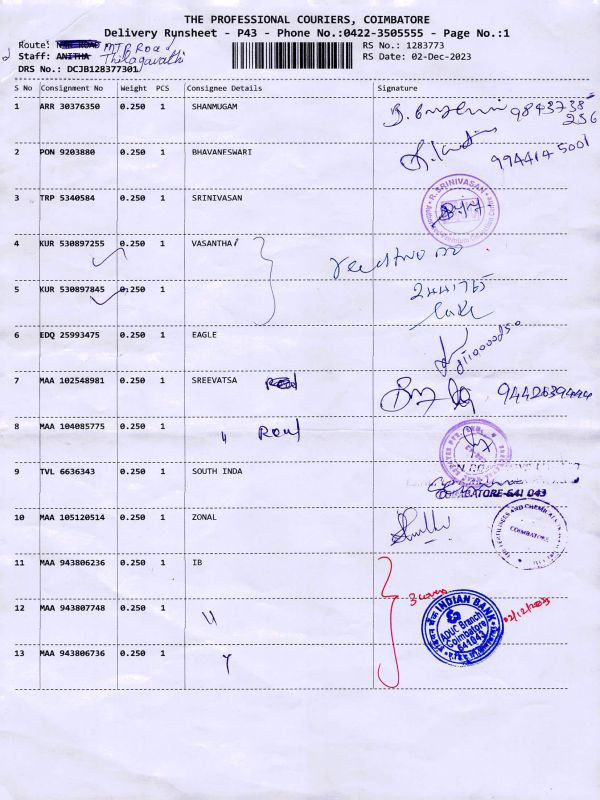 THE PROFESSIONAL COURIERS, COIMBATORE
Delivery Runsheet - P43 - Phone No.:0422-3505555 - Page No.:1
Route: MTP Road
RS No.: 1283773
Staff: ANITHA Thilagavathi
RS Date: 02-Dec-2023
DRS No.: DCJB128377301
S No Consignment No Weight PCS Consignee Details Signature
1 ARR 30376350 0.250 1 SHANMUGAM
9843738
256
2 PON 9203880 0.250 1 BHAVANESWARI
9944145001
3 TRP 5340584 0.250 1 SRINIVASAN
R. SRINIVASAN
4 KUR 530897255 0.250 1 VASANTHA
5 KUR 530897845 0.250 1
2441765
6 EDQ 25993475 0.250 1 EAGLE
7 MAA 102548981 0.250 1 SREEVATSA
8 MAA 104085775 0.250 1 " Rouf
9 TVL 6636343 0.250 1 SOUTH INDA
COIMBATORE-641 043
10 MAA 105120514 0.250 1 ZONAL
COIMBATORE
11 MAA 943806236 0.250 1 IB
3 covers
INDIAN BANK
ADUC Branch
Coimbatore
641043
02/12/2023
12 MAA 943807748 0.250 1 "
13 MAA 943806736 0.250 1